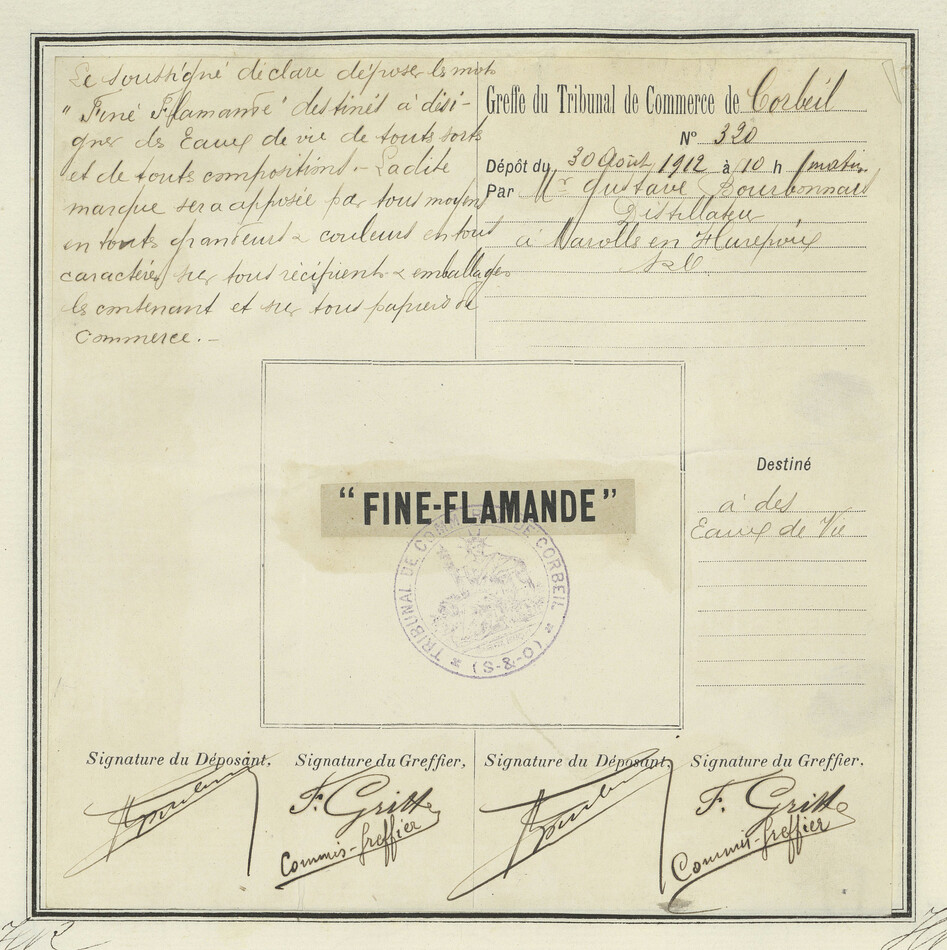 Le soussigné déclare déposer les mots
"Fine Flamande" destinés à dési-
gner des Eaux de vie de toutes sortes
et de toutes compositions. - Ladite
marque sera apposée par tous moyens
en toutes grandeurs & couleurs en tous
caractères sur tous récipients & emballages
les contenant et sur tous papiers de
Commerce. -
Greffe du Tribunal de Commerce de Corbeil
N° 320
Dépôt du 30 Août 1912 à 10 h matin
Par Mr Gustave Bourbonnais
Distillateur
à Marolles en Hurepoix
S&O
"FINE-FLAMANDE"
TRIBUNAL DE COMMERCE DE CORBEIL
* (S-&-O) *
Destiné
à des
Eaux de Vie
Signature du Déposant,
Signature du Greffier,
Signature du Déposant,
Signature du Greffier.
F. Gritte
Commis-Greffier
F. Gritte
Commis-Greffier